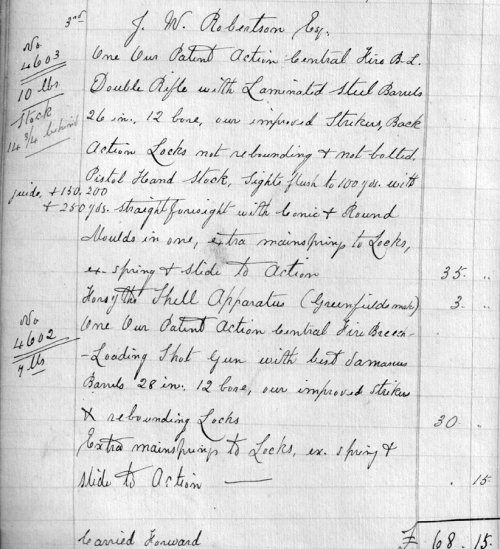 3rd J. W. Robertson Esq.
No 4603
10 lbs
Stock
14 3/4 behind
One Our Patent Action Central Fire B-L.
Double Rifle with Laminated Steel Barrels
26 in. 12 bore, our improved Strikers, Back
Action Locks not rebounding & not bolted.
Pistol Hand Stock, Sights flush to 100 yds. with
guide, + 150, 200
+ 250 yds. straight foresight with Conic & Round
Moulds in one, extra mainsprings to Locks,
ex spring & slide to Action 35 . ..
Forsyths Shell Apparatus (Greenfields make) 3 . ..
No 4602
7 lbs
One Our Patent Action Central Fire Breech-
-Loading Shot Gun with best damascus
Barrels 28 in. 12 bore, our improved Strikers
& rebounding Locks 30 . ..
Extra mainsprings to Locks, ex. spring &
slide to Action — . 15
Carried Forward £ 68 . 15 .